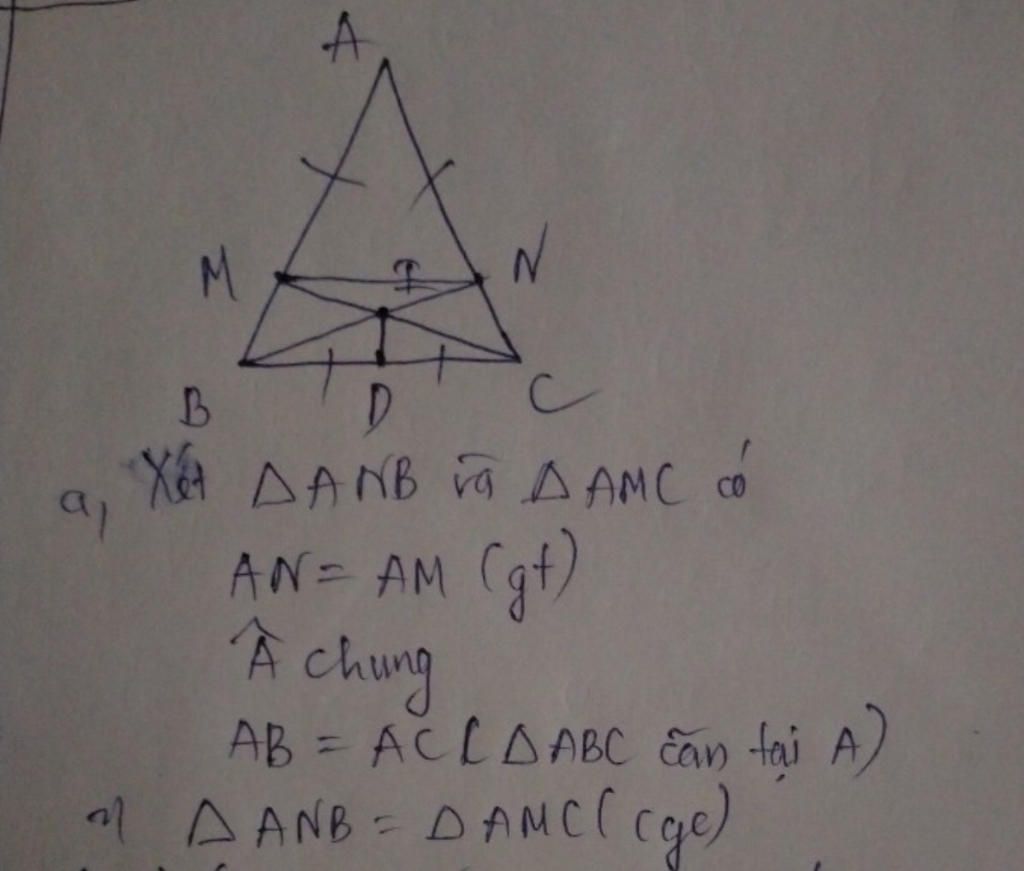 A
M
I
N
B
D
C
a, Xét △ANB và △AMC có
AN = AM (gt)
Â chung
AB = AC (△ABC cân tại A)
=> △ANB = △AMC (cgc)